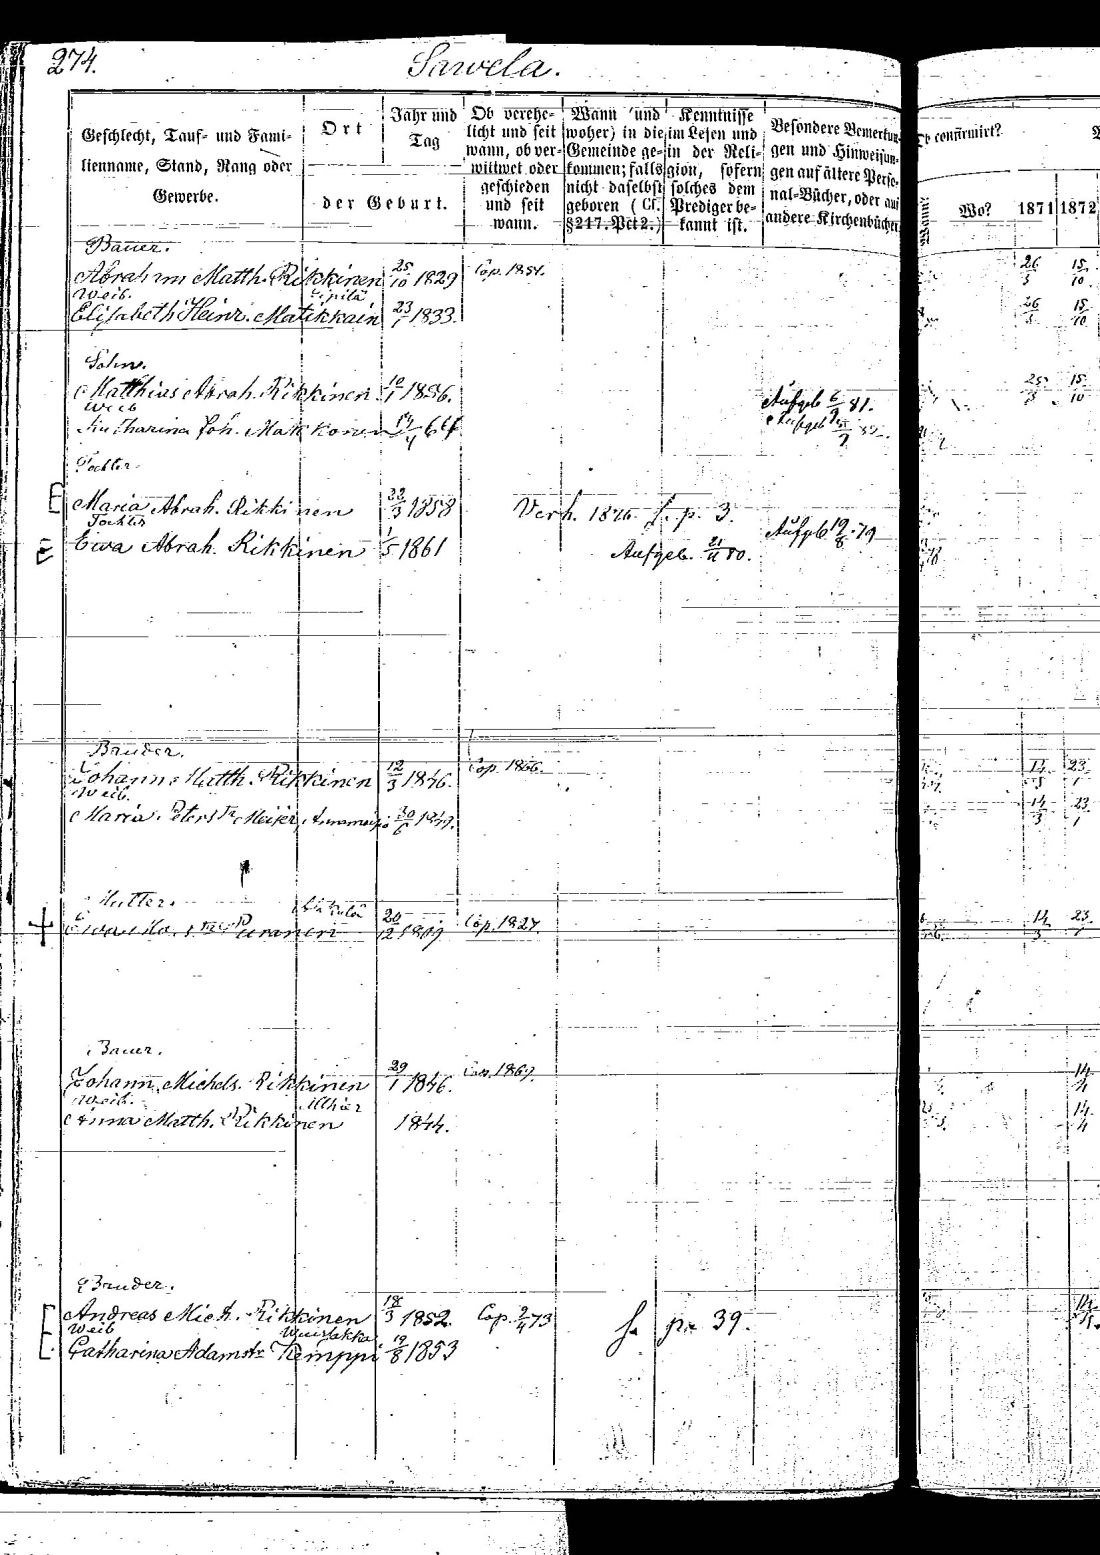 274.
Sawela.
Geschlecht, Tauf- und Fami-
lienname, Stand, Rang oder
Gewerbe.
Ort
der Geburt.
Jahr und
Tag
Ob verehe-
licht und seit
wann, ob ver-
wittwet oder
geschieden
und seit
wann.
Wann und
woher) in die
Gemeinde ge-
kommen; falls
nicht daselbst
geboren (Cf.
§ 217. Pct 2.)
Kenntnisse
im Lesen und
in der Reli-
gion, sofern
solches dem
Prediger be-
kannt ist.
Besondere Bemerkun-
gen und Hinweisun-
gen auf ältere Perso-
nal-Bücher, oder auf
andere Kirchenbücher
Ob confirmirt?
Wann?
Wo?
1871 1872
Bauer.
Abraham Matth. Rikkinen 25/10 1829 Cop. 1851. 26/3 15/10
Weib.
Elisabeth Heinr. Matikkain 23/1 1833. 26/3 15/10
Sohn.
Matthias Abrah. Rikkinen 10/1 1856. Aufgeb 6/9 81. 15/10
Weib
Joh. 64
Tochter
Maria Abrah. Rikkinen 22/3 1858 Verh. 1876 f. p. 3.
Tochter
Ewa Abrah. Rikkinen 1/5 1861 Aufgeb. 21/11 80. Aufgeb 19/8 79
Bruder.
Johann Matth. Rikkinen 12/3 1846. Cop. 1866. 23/1
Weib.
Maria Peters 30/6 14/3 23/1
Mutter.
Ewa 20/12 Cop. 1827. 14/3 23/1
Bauer.
Johann Michels. Rikkinen 29/1 1846. Cop. 1867. 14/4
Weib.
Anna Matth. Rikkinen 1844. 14/4
Bruder.
Andreas Mich. Rikkinen 18/3 1852. Cop. 2/4 73 f. p. 39.
Weib
Catharina Adamstr Kemppi 19/8 1853